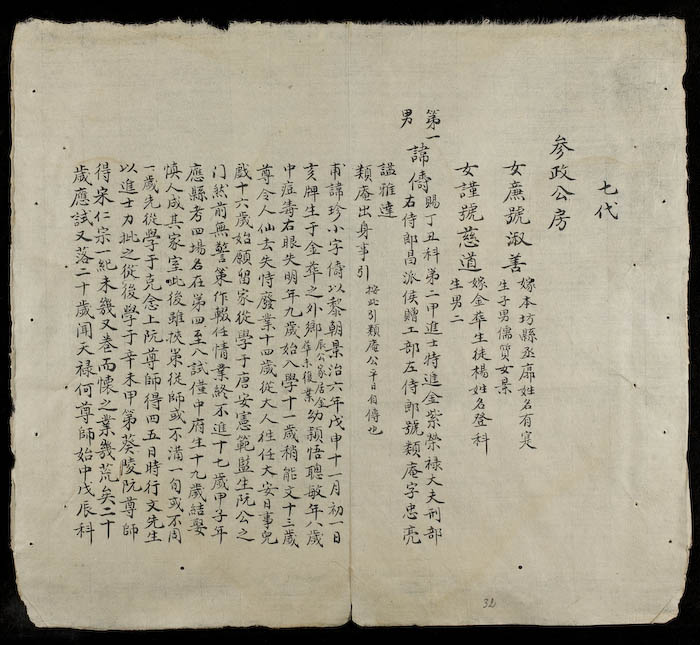 七代
参政公房
女廡號淑善 嫁本坊縣丞廊姓名有寔
生子男儒質女景
女謹號慈道 嫁金葬生徒楊姓名登科
生男二
第一男 諱儔 賜丁丑科第二甲進士特進金紫榮禄大夫刑部
右侍郎昌派侯贈工部左侍郎號類庵字忠亮
諡雅達
類庵出身事引 按此引類庵公平日自傳也
甫諱珍小字儔以黎朝景治六年戊申十一月初一日
亥牌生于金葬之外鄉 幼穎悟聰敏年八歲
中痘毒右眼失明年九歲始入學十一歲稍能文十三歲
尊令人仙去失恃廢業十四歲從大人往任大安日事兒
戲十六歲始願留家從學于唐安憲範監生阮公之
门然前無警策作輟任情業終不進十七歲甲子年
應縣考四場名在第四至八試僅中府生十九歲結娶
慎人成其家室此後雖挾策從師或不滿一旬或不周
一歲先從學于克念上阮尊師得四五日時行文先生
以進士力批之從後學于辛未甲第葵陵阮尊師
得宋仁宗一紀未幾又卷而懷之業幾荒矣二十
歲應試又落二十歲闻天禄何尊師始中戊辰科
32